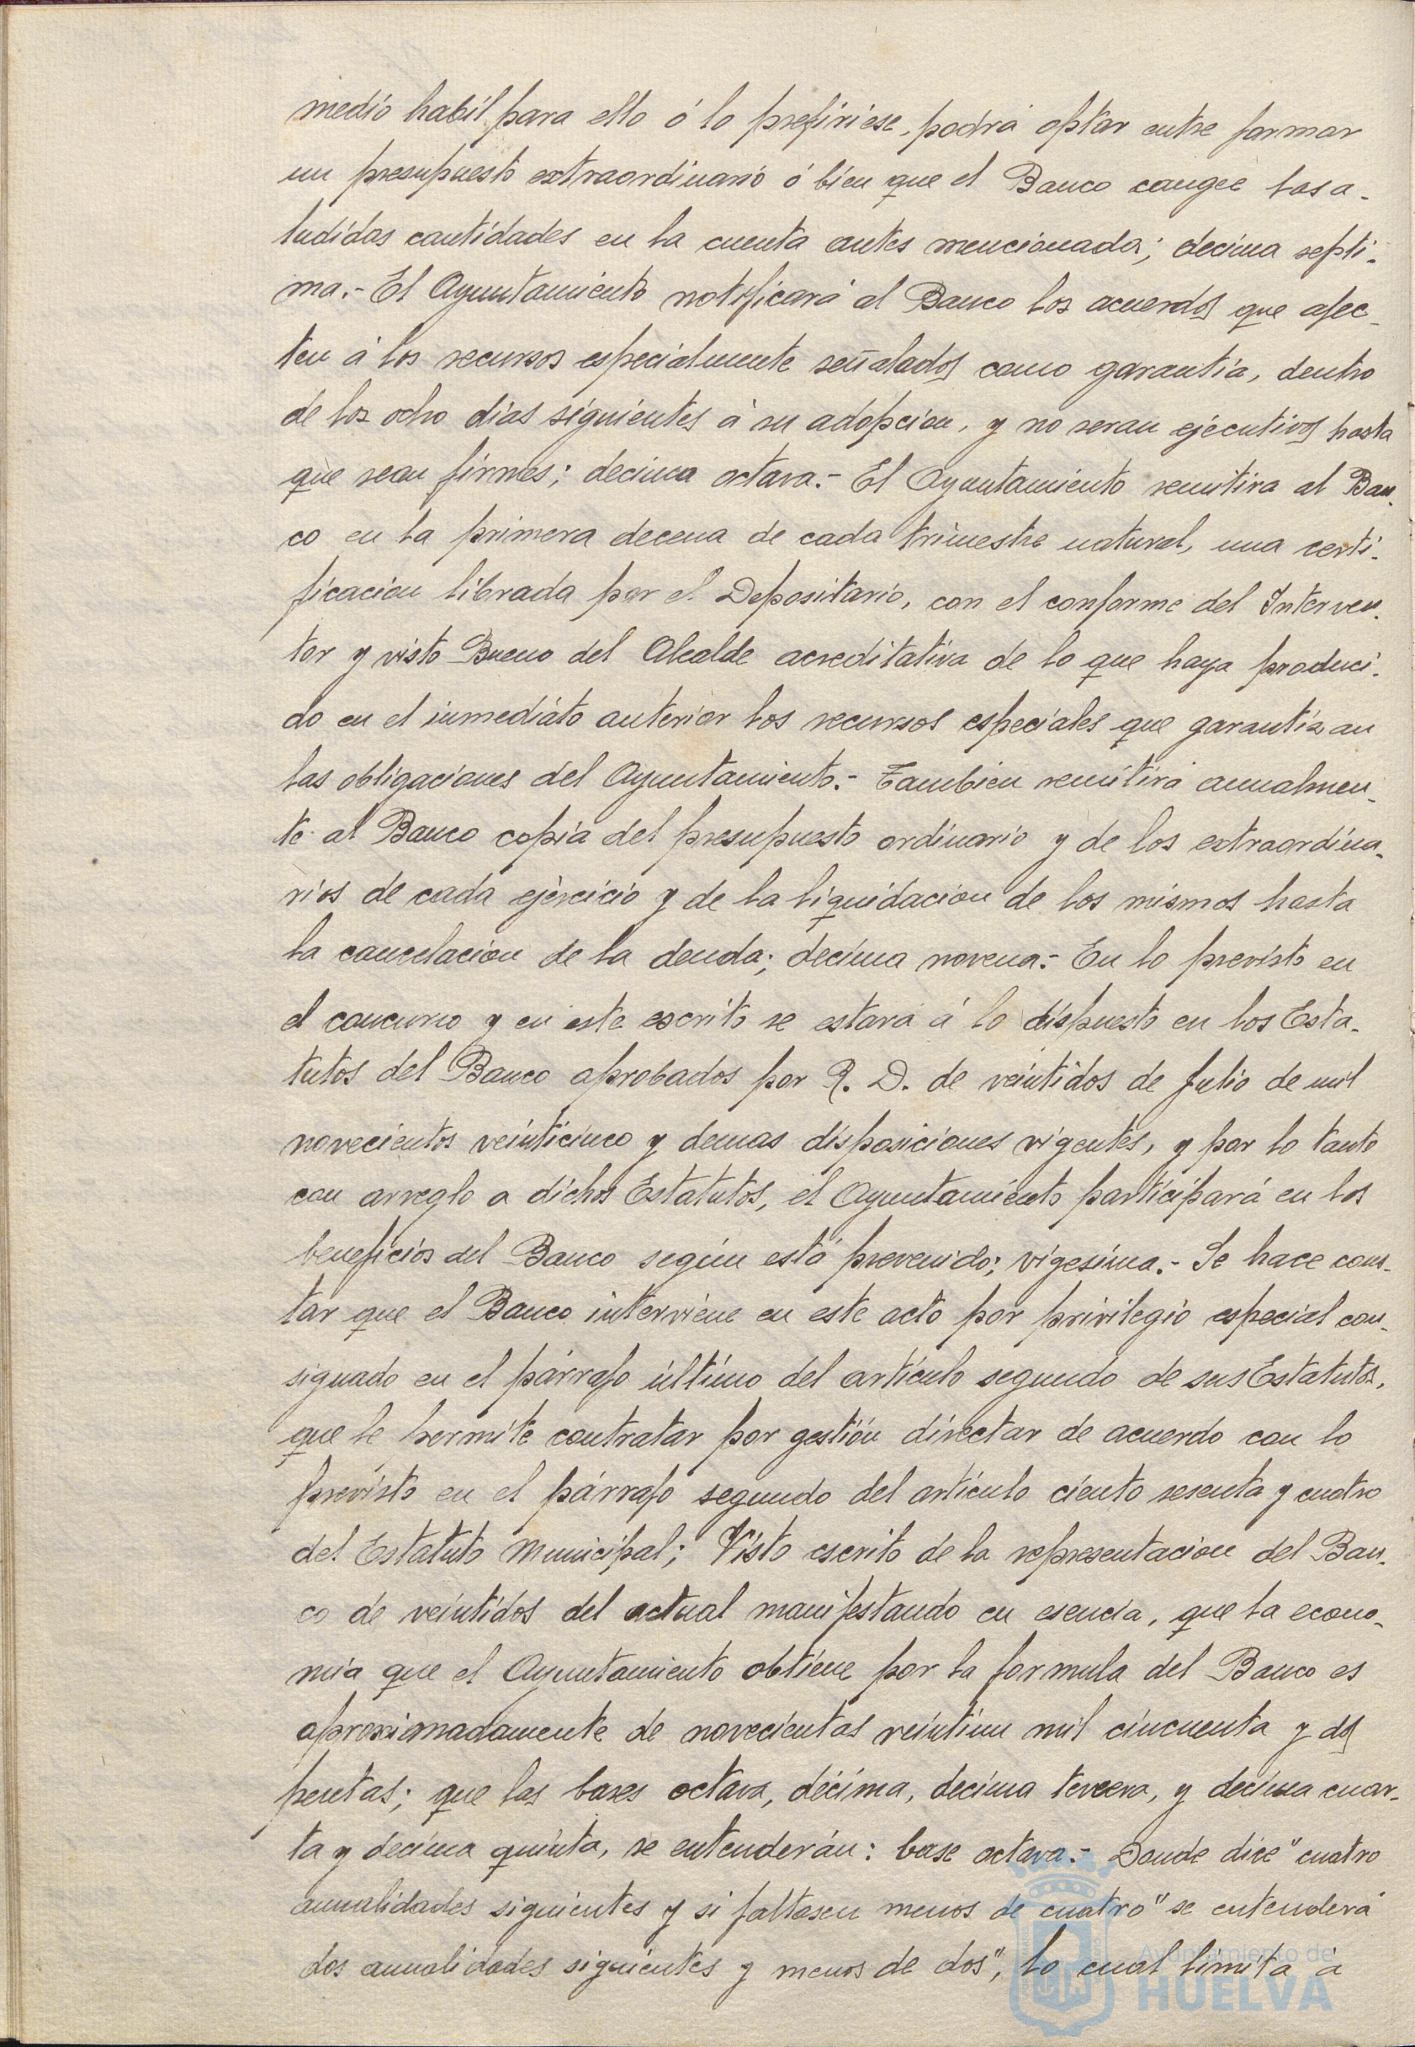 medio habil para ello ó lo prefiriese, podrá optar entre formar
un presupuesto extraordinario ó bien que el Banco cangee las a-
ludidas cantidades en la cuenta antes mencionada; decima septi-
ma.- El Ayuntamiento notificará al Banco los acuerdos que afec-
ten á los recursos especialmente señalados como garantia, dentro
de los ocho dias siguientes á su adopcion, y no seran ejecutivos hasta
que sean firmes; decima octava.- El Ayuntamiento remitira al Ban-
co en la primera decena de cada trimestre natural, una certi-
ficacion librada por el Depositario, con el conforme del Interven-
tor y visto Bueno del Alcalde acreditativa de lo que haya produci-
do en el inmediato anterior los recursos especiales que garantizan
las obligaciones del Ayuntamiento.- Tambien remitirá anualmen-
te al Banco copia del presupuesto ordinario y de los extraordina-
rios de cada ejercicio y de la liquidacion de los mismos hasta
la cancelacion de la deuda; decima novena.- En lo previsto en
el concurso y en este escrito se estará á lo dispuesto en los Esta-
tutos del Banco aprobados por R. D. de veintidos de Julio de mil
novecientos veinticinco y demas disposiciones vigentes, y por lo tanto
con arreglo a dichos Estatutos, el Ayuntamiento participará en los
beneficios del Banco según está prevenido; vigesima.- Se hace cons-
tar que el Banco interviene en este acto por privilegio especial con-
signado en el párrafo último del artículo segundo de sus Estatutos,
que le permite contratar por gestión directar de acuerdo con lo
previsto en el párrafo segundo del artículo ciento sesenta y cuatro
del Estatuto Municipal; Visto escrito de la representacion del Ban-
co de veintidos del actual manifestando en esencia, que la econo-
mia que el Ayuntamiento obtiene por la formula del Banco es
aproximadamente de novecientas veintiun mil cincuenta y dos
pesetas; que las bases octava, décima, decima tercera, y decima cuar-
ta y decima quinta, se entenderán: base octava.- Donde dice "cuatro
anualidades siguientes y si faltasen menos de cuatro" se entenderá
dos anualidades siguientes y menos de dos", lo cual limita á
Ayuntamiento de
HUELVA